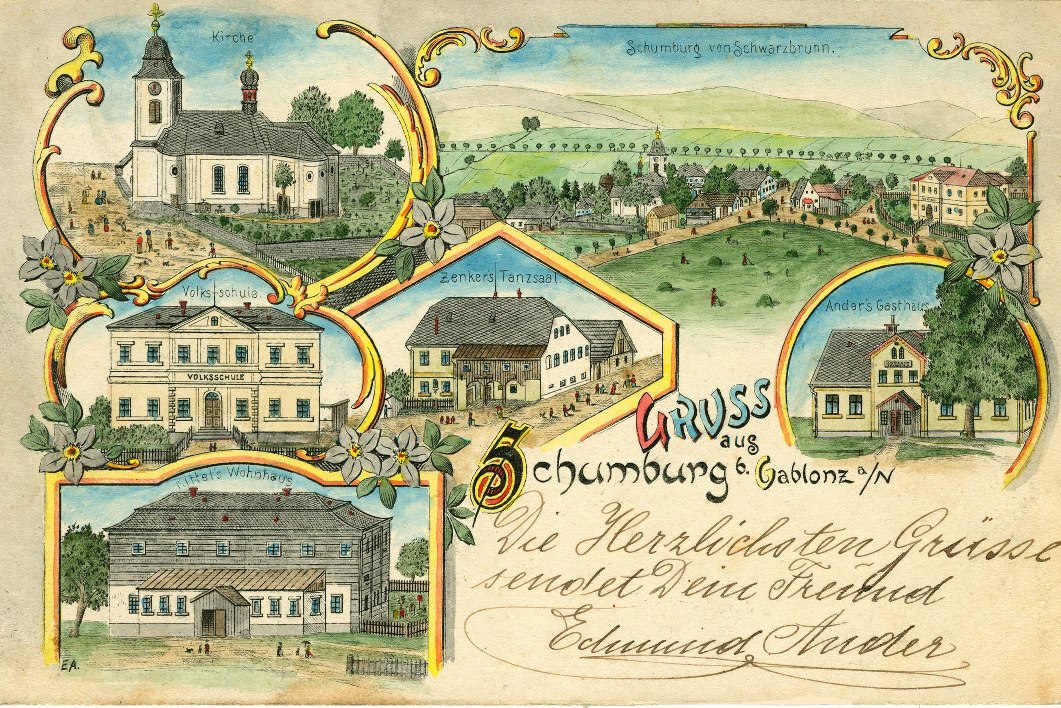 Kirche
Schumburg von Schwarzbrunn.
Volksschule.
VOLKSSCHULE
Zenkers Tanzsaal.
Anders Gasthaus
GRUSS
aus
Schumburg b. Gablonz a/N
Wohnhaus
Die Herzlichsten Grüsse
sendet Dein Freund
Edmund Ander
E.A.